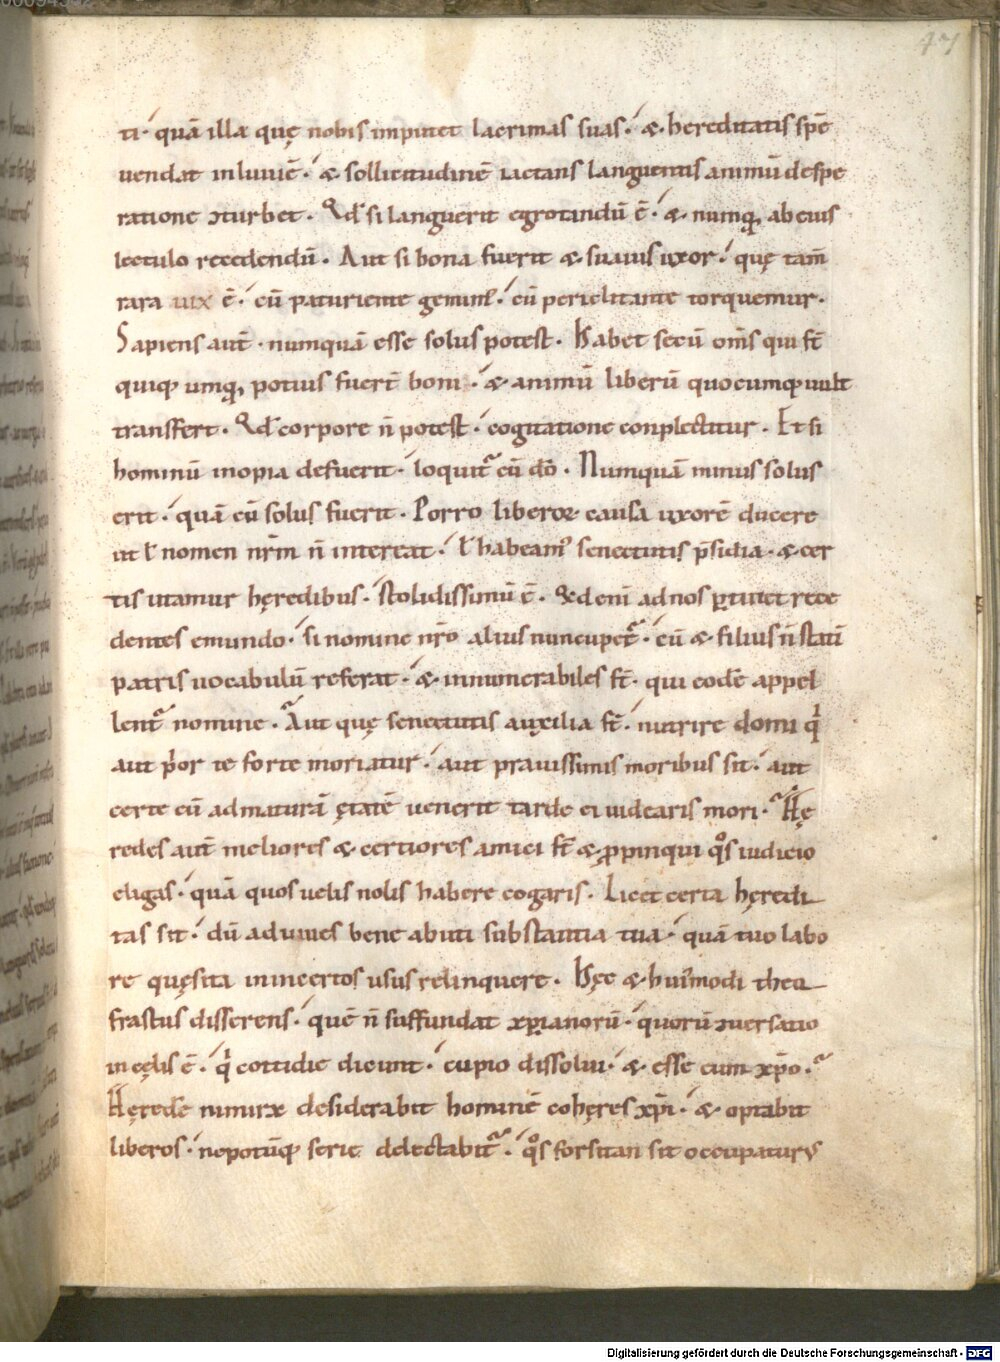 47
ti· quā illa quę nobis imputet lacrimas suas· & hereditatis spē
uendat inluuiē· & sollicitudinē iactans languentis animū despe
ratione ↄturbet. Qd̄ si languerit egrotandū ē· & numq̄ ab eius
lectulo recedendū. Aut si bona fuerit & suauis uxor· quę tam̄
rara uix ē· cū parturiente gemim᷒· cū periclitante torquemur.
Sapiens aut̄· numquā esse solus potest. Habet secū om̄s qui st̄
quiq; umq̄, potius fuer̄t boni· & animū liberū quocumq; uult
transfert. Qd̄ corpore n̄ potest· cogitatione conplectitur. Et si
hominū inopia defuerit· loquit᷑ cū dō. Numquā minus solus
erit· quā cū solus fuerit. Porro liberoꝝ causa uxorē ducere
ut ł nomen nr̄m n̄ intereat· ł habeam᷒ senectutis p̄sidia· & cer
tis utamur hęredibus· stolidissimū ē. Qd enī ad nos ꝑtinet rece
dentes emundo· si nomine nr̄o alius nuncupet᷑· cū & filius n̄ statī
patris uocabulū referat· & innumerabiles st̄· qui eodē appel
lent᷑ nomine. Aut quę senectutis auxilia st̄· nutrire domi q̇
aut p̄or te forte moriatur· aut prauissimis moribus sit· aut
certe cū ad maturā ętatē uenerit tarde ei uidearis mori. Hę
redes aut̄ meliores & certiores amici st̄ & ꝓpinqui qͦs iudicio
eligas· quā quos uelis nolis habere cogaris. Licet certa hęredi
tas sit· dū aduiues bene abuti substantia tua· quā tuo labo
re quęsita inincertos usus relinquere. Hęc & hui᷒modi theo
frastus disserens· quē n̄ suffundat xp̄ianorū· quorū ↄuersatio
in cęlis ē· q̇ cottidie dicunt· cupio dissolui· & esse cum xp̄o.
Hęredē nimirū desiderabit hominē cohęres xp̄i· & optabit
liberos· nepotūq; serie delectabit᷑· qͦs forsitan sit occupaturus
Digitalisierung gefördert durch die Deutsche Forschungsgemeinschaft - DFG